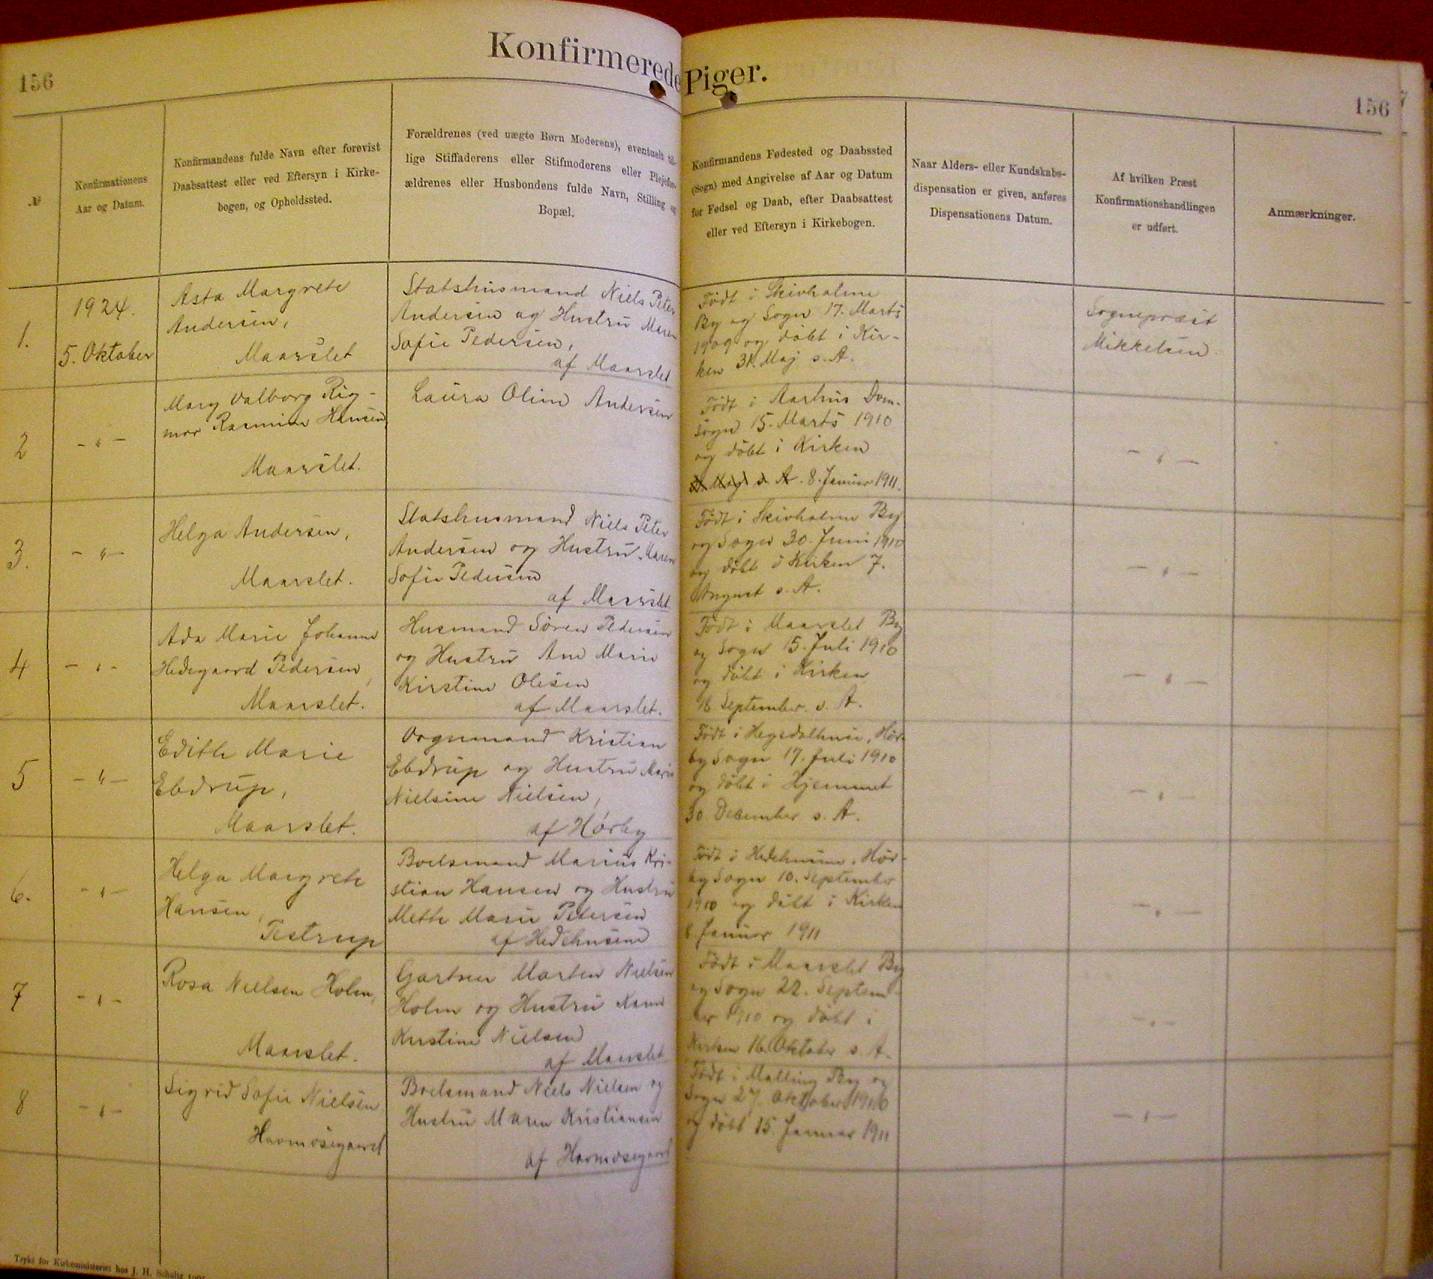 156
Konfirmerede Piger.
156
№
Konfirmationens
Aar og Datum.
Konfirmandens fulde Navn efter forevist
Daabsattest eller ved Eftersyn i Kirke-
bogen, og Opholdssted.
Forældrenes (ved uægte Børn Moderens), eventuelt til-
lige Stiffaderens eller Stifmoderens eller Plejefor-
ældrenes eller Husbondens fulde Navn, Stilling og
Bopæl.
Konfirmandens Fødested og Daabssted
(Sogn) med Angivelse af Aar og Datum
for Fødsel og Daab, efter Daabsattest
eller ved Eftersyn i Kirkebogen.
Naar Alders- eller Kundskabs-
dispensation er given, anføres
Dispensationens Datum.
Af hvilken Præst
Konfirmationshandlingen
er udført.
Anmærkninger.
1.
1924.
5. Oktober
Asta Margrete
Andersen,
Maarslet
Statshusmand Niels Peter
Andersen og Hustru Maren
Sofie Pedersen,
af Maarslet
Født i Skivholme
By og Sogn 17. Marts
1909 og døbt i Kir-
ken 31. Maj s. A.
Sognepræst
Mikkelsen
2
- " -
Mary Valborg Rig-
mor Rasmine Hansen
Maarslet.
Laura Oline Andersen
Født i Aarhus Dom-
sogn 15. Marts 1910
og døbt i Kirken
8. Januar 1911.
- " -
3.
- " -
Helga Andersen,
Maarslet.
Statshusmand Niels Peter
Andersen og Hustru Maren
Sofie Pedersen
af Maarslet
Født i Skivholme By
og Sogn 30. Juni 1910
og døbt i Kirken 7.
August s. A.
- " -
4
- " -
Ada Marie Johanne
Hedegaard Pedersen,
Maarslet.
Husmand Søren Pedersen
og Hustru Ane Marie
Kirstine Olesen
af Maarslet.
Født i Maarslet By
og Sogn 15. Juli 1910
og døbt i Kirken
September s. A.
- " -
5
- " -
Edith Marie
Ebdrup,
Maarslet.
Kristian
Ebdrup og Hustru Marie
Nielsine Nielsen,
af Hørby
Født i
by Sogn 17. Juli 1910
og døbt i Hjemmet
30. December s. A.
- " -
6.
- " -
Helga Margrete
Hansen,
Testrup
Boelsmand Marius Kri-
stian Hansen og Hustru
Mette Marie Petersen
af Hedehusene
Født i Hedehusene, Hør-
by Sogn 10. September
1910 og døbt i Kirken
8. Januar 1911
- " -
7
- " -
Rosa Nielsen Holm,
Maarslet.
Gartner Morten Nielsen
Holm og Hustru
Kirstine Nielsen
af Maarslet
Født i Maarslet By
og Sogn 22. Septem-
ber 1910 og døbt i
Kirken 16. Oktober s. A.
- " -
8
- " -
Sigrid Sofie Nielsen
Havmosegaard
Boelsmand Niels Nielsen og
Hustru Maren Kristiansen
af Havmosegaard
Født i Malling By og
Sogn 27. Oktober 1910
og døbt 15. Januar 1911
- " -
Trykt for Kirkeministeriet hos J. H. Schultz